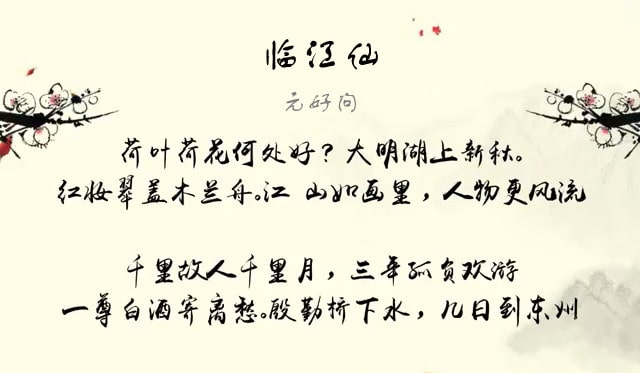 临江仙
元好问
荷叶荷花何处好？大明湖上新秋。
红妆翠盖木兰舟。江 山如画里，人物更风流
千里故人千里月，三年孤负欢游
一尊白酒寄离愁。殷勤桥下水，几日到东州